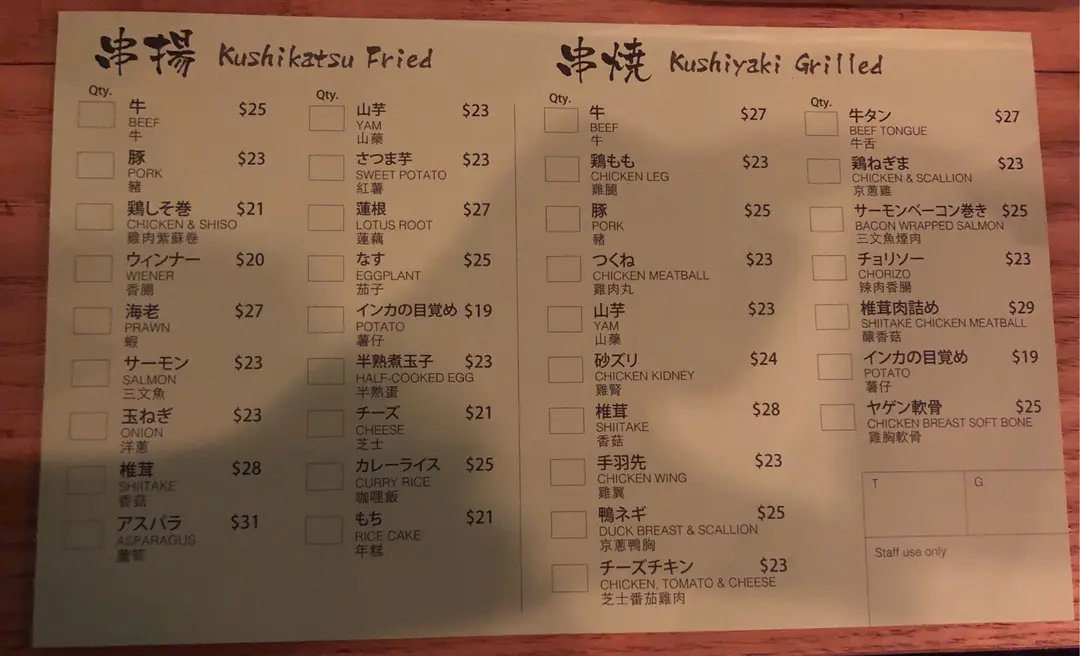 串揚 Kushikatsu Fried
Qty.
牛 $25
BEEF
牛
豚 $23
PORK
豬
鶏しそ巻 $21
CHICKEN & SHISO
雞肉紫蘇卷
ウィンナー $20
WIENER
香腸
海老 $27
PRAWN
蝦
サーモン $23
SALMON
三文魚
玉ねぎ $23
ONION
洋蔥
椎茸 $28
SHIITAKE
香菇
アスパラ $31
ASPARAGUS
蘆筍
Qty.
山芋 $23
YAM
山藥
さつま芋 $23
SWEET POTATO
紅薯
蓮根 $27
LOTUS ROOT
蓮藕
なす $25
EGGPLANT
茄子
インカの目覚め $19
POTATO
薯仔
半熟煮玉子 $23
HALF-COOKED EGG
半熟蛋
チーズ $21
CHEESE
芝士
カレーライス $25
CURRY RICE
咖喱飯
もち $21
RICE CAKE
年糕
串焼 Kushiyaki Grilled
Qty.
牛 $27
BEEF
牛
鶏もも $23
CHICKEN LEG
雞腿
豚 $25
PORK
豬
つくね $23
CHICKEN MEATBALL
雞肉丸
山芋 $23
YAM
山藥
砂ズリ $24
CHICKEN KIDNEY
雞腎
椎茸 $28
SHIITAKE
香菇
手羽先 $23
CHICKEN WING
雞翼
鴨ネギ $25
DUCK BREAST & SCALLION
京蔥鴨胸
チーズチキン $23
CHICKEN, TOMATO & CHEESE
芝士番茄雞肉
Qty.
牛タン $27
BEEF TONGUE
牛舌
鶏ねぎま $23
CHICKEN & SCALLION
京蔥雞
サーモンベーコン巻き $25
BACON WRAPPED SALMON
三文魚煙肉
チョリソー $23
CHORIZO
辣肉香腸
椎茸肉詰め $29
SHIITAKE CHICKEN MEATBALL
釀香菇
インカの目覚め $19
POTATO
薯仔
ヤゲン軟骨 $25
CHICKEN BREAST SOFT BONE
雞胸軟骨
T
G
Staff use only